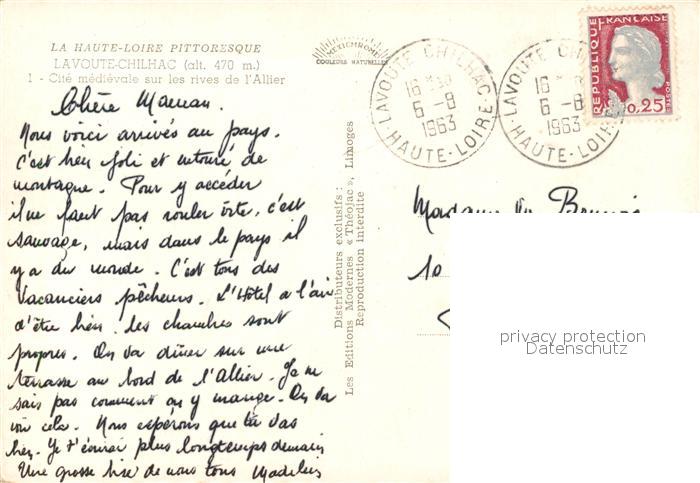 LA HAUTE-LOIRE PITTORESQUE
LAVOUTE-CHILHAC (alt. 470 m.)
1 - Cité médiévale sur les rives de l'Allier
MEXICHROME
COULEURS NATURELLES
Chère Maman.
Nous voici arrivés au pays.
C'est bien joli et entouré de
montagne. Pour y accéder
il ne faut pas rouler vite, c'est
sauvage, mais dans le pays il
y a du monde. C'est tous des
vacanciers pêcheurs. L'Hôtel a l'air
d'être bien. les chambres sont
propres. On va dîner sur une
terrasse au bord de l'Allier. Je ne
sais pas comment on y mange. On va
voir cela. Nous espérons que tu vas
bien. Je t'écrirai plus longtemps demain
Une grosse bise de nous tous
Distributeurs exclusifs :
Les Editions Modernes « Théojac », Limoges
Reproduction interdite
LAVOUTE CHILHAC
16 H 30
6 - 8
1963
HAUTE-LOIRE
LAVOUTE CHI
16
6 - 8
1963
HAUTE-LOIRE
REPUBLIQUE FRANÇAISE
POSTES
0,25
Madame
10
privacy protection
Datenschutz